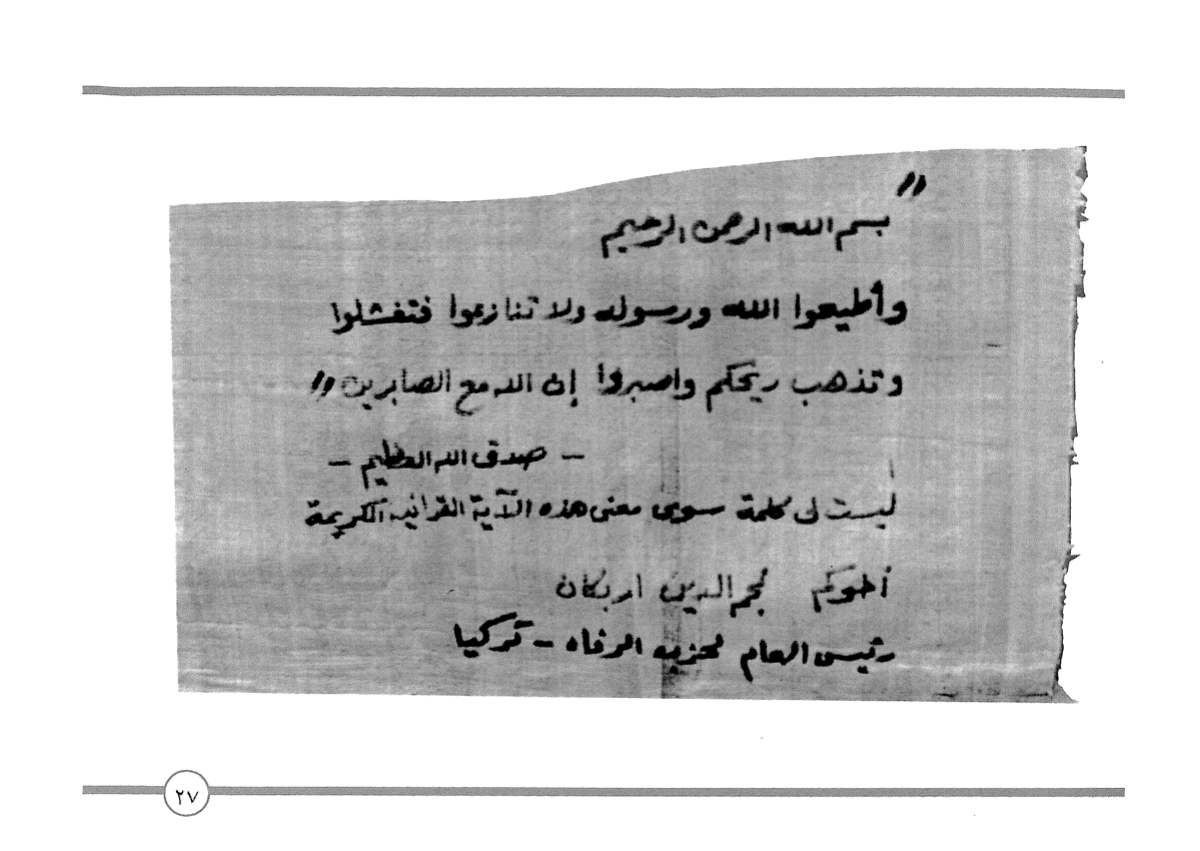 "
بسم الله الرحمن الرحيم
وأطيعوا الله ورسوله ولا تنازعوا فتفشلوا
وتذهب ريحكم واصبروا إن الله مع الصابرين"
- صدق الله العظيم -
ليست لي كلمة سوى معنى هذه الآية القرانيه الكريمة
أخوكم نجم الدين اربكان
رئيس العام لحزب الرفاه - تركيا
٢٧